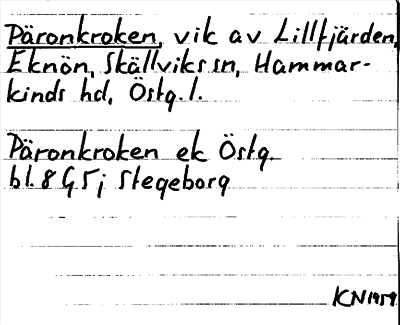 Päronkroken, vik av Lillfjärden,
Eknön, Skällviks sn, Hammar-
kinds hd, Östg. l.
Päronkroken ek Östg.
bl. 8 G 5 j Stegeborg
KN 1959